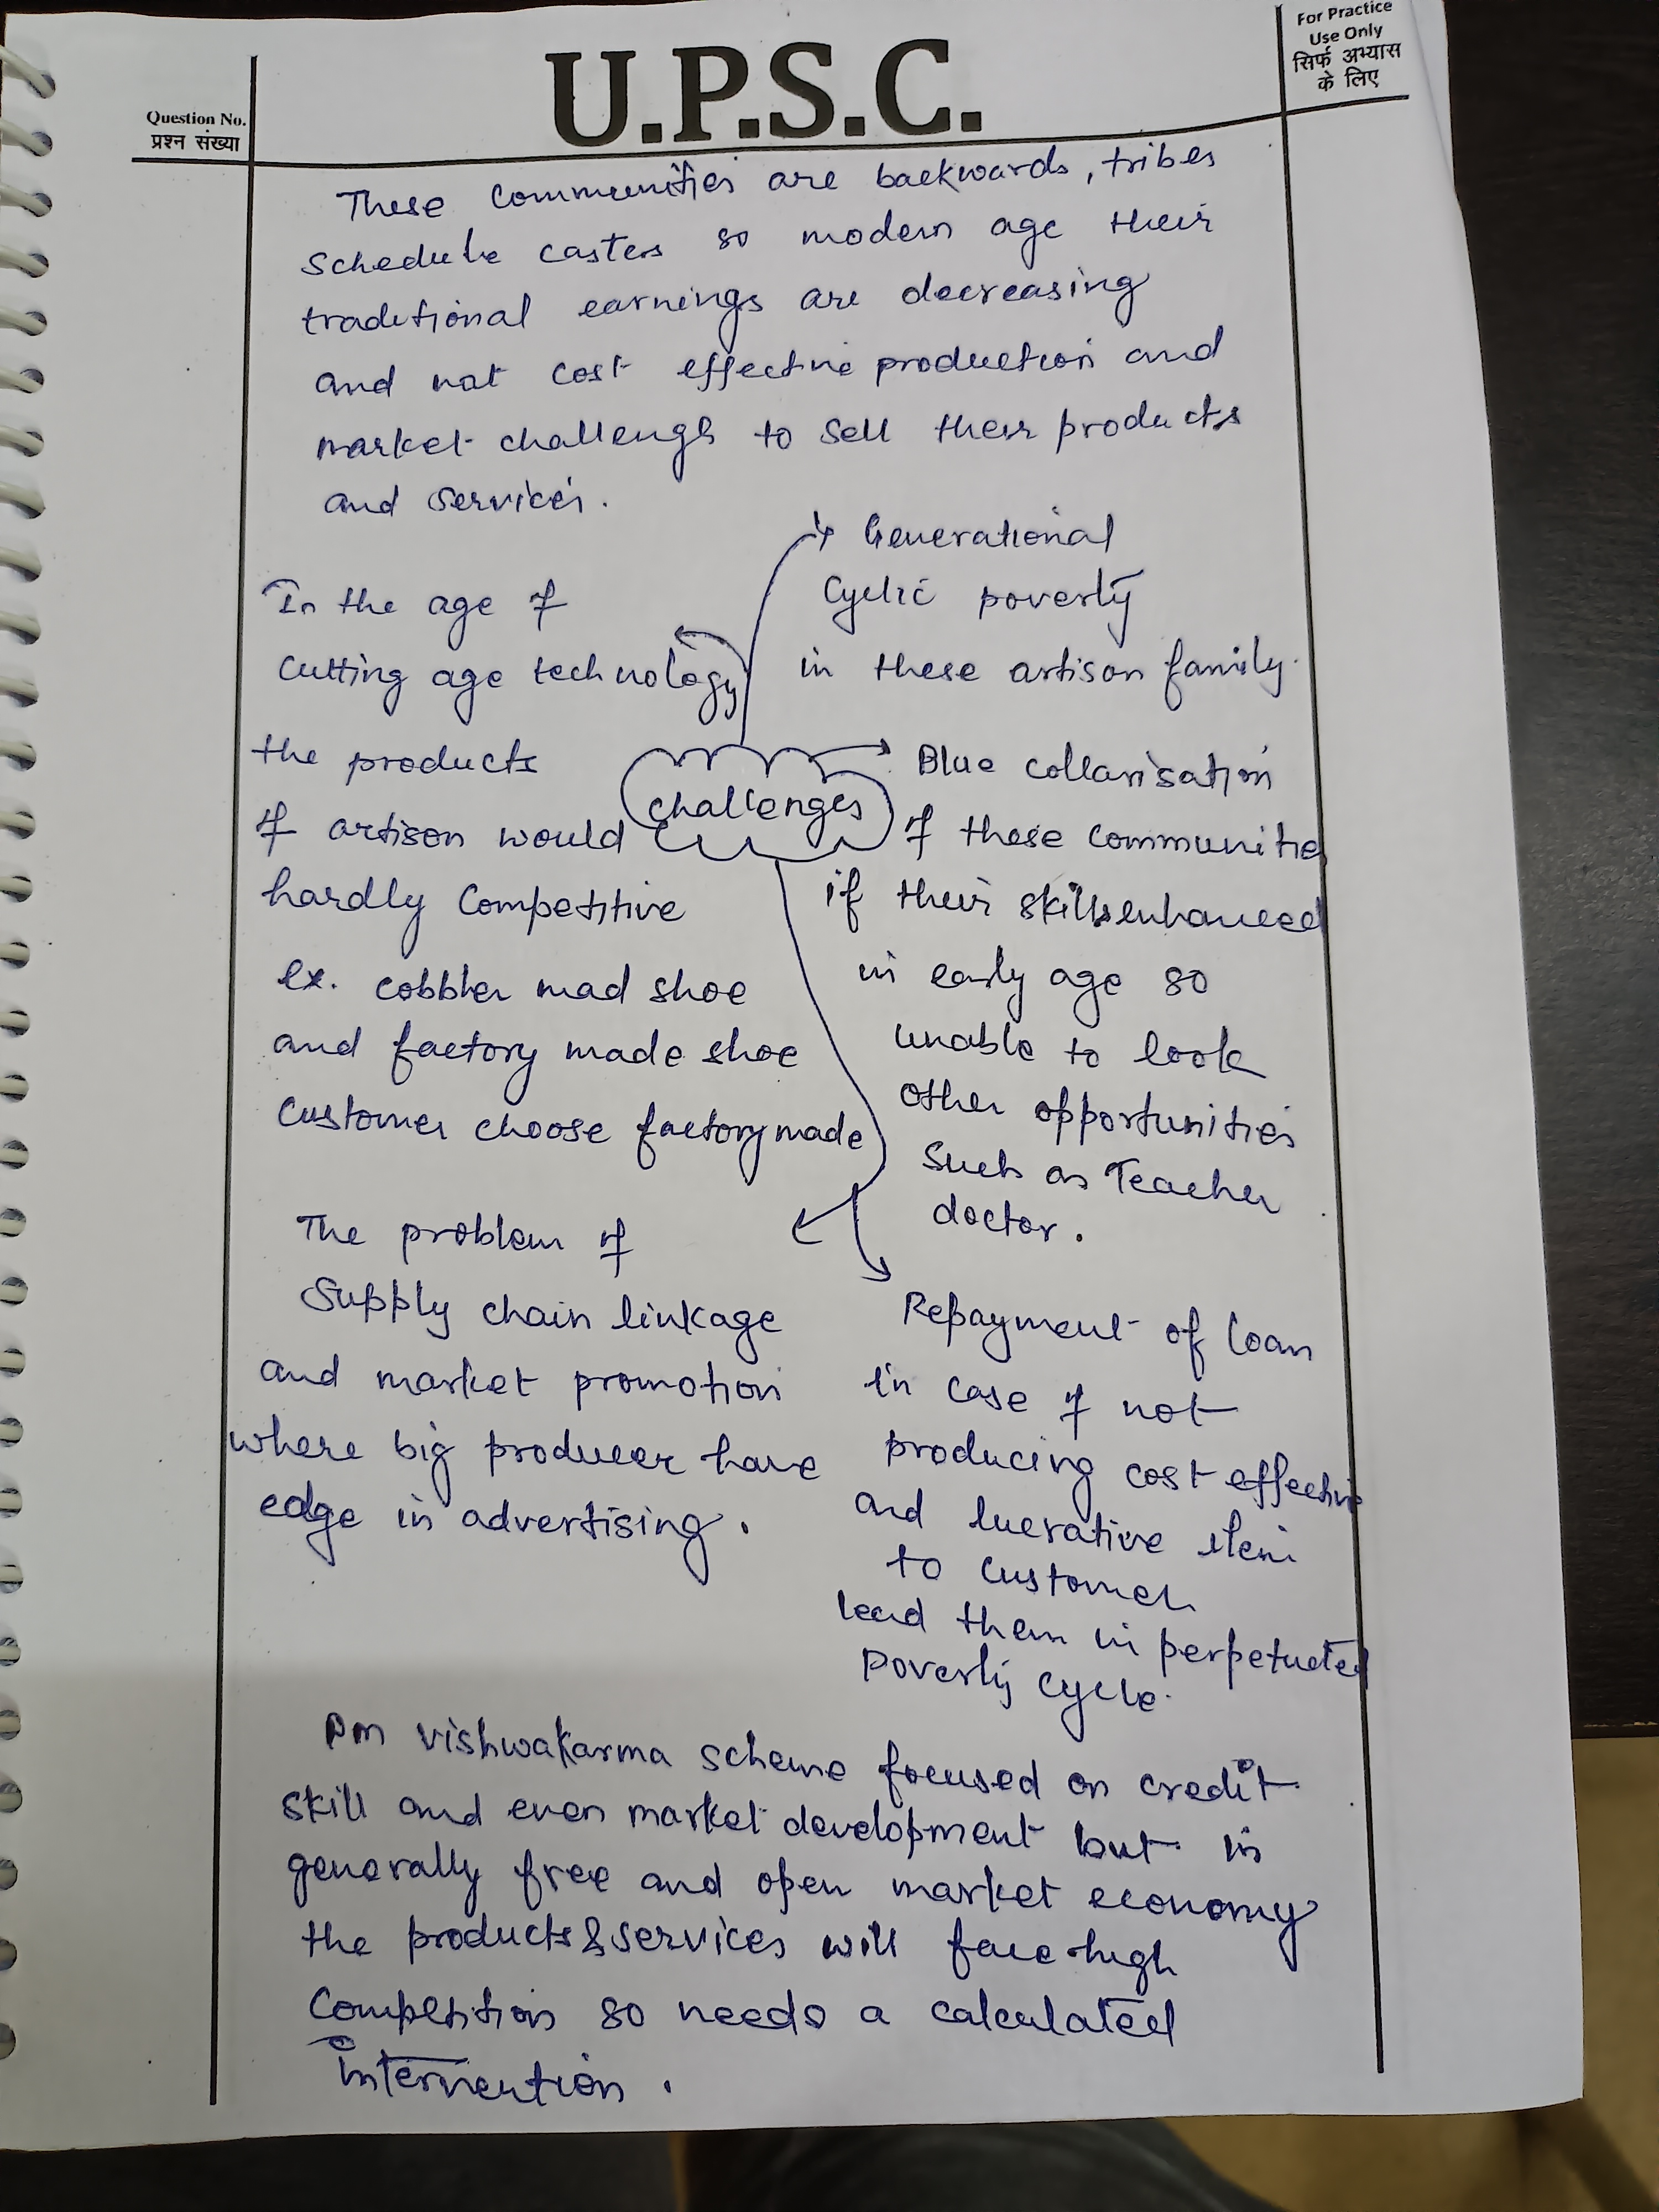 For Practice
Use Only
सिर्फ अभ्यास
के लिए
U.P.S.C.
Question No.
प्रश्न संख्या
These communities are backwards, tribes
Schedule castes so modern age their
traditional earnings are decreasing
and not cost effective production and
market challenges to sell their products
and services.
Generational
Cyclic poverty
in these artison family.
In the age of
cutting age technology
the products
of artison would
hardly competitive
ex. cobbler mad shoe
and factory made shoe
customer choose factory made
challenges
Blue collarisation
of these communities
if their skills enhanced
in early age so
unable to look
other opportunities
such as Teacher
doctor.
The problem of
Supply chain linkage
and market promotion
where big producer have
edge in advertising.
Repayment of loan
in case of not
producing cost effective
and lucrative item
to customer
lead them in perpetuated
poverty cycle.
PM vishwakarma scheme focused on credit
skill and even market development but in
generally free and open market economy
the products & services will face high
competition so needs a calculated
intervention.